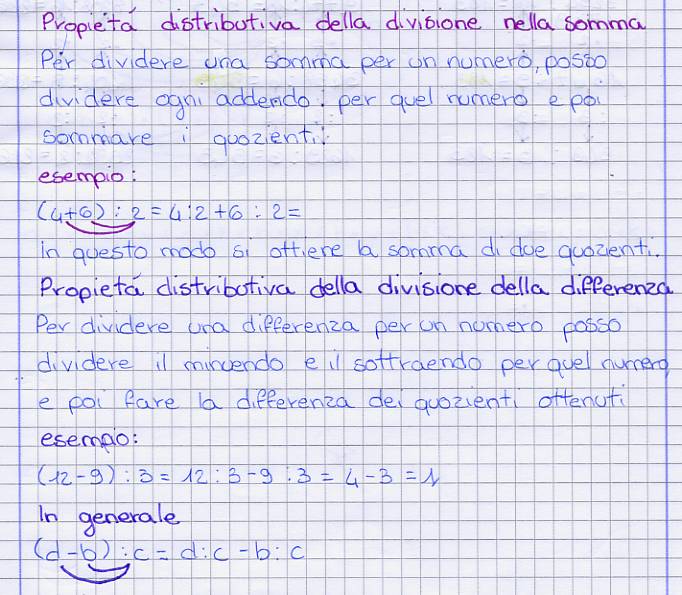 Propietá distributiva della divisione nella somma
Per dividere una somma per un numero, posso
dividere ogni addendo per quel numero e poi
sommare i quozienti:
esempio:
(4+6) : 2 = 4:2+6 : 2=
In questo modo si ottiene la somma di due quozienti.
Propietá distributiva della divisione della differenza
Per dividere una differenza per un numero posso
dividere il minuendo e il sottraendo per quel numero
e poi fare la differenza dei quozienti ottenuti
esempio:
(12-9) : 3 = 12 : 3-9 : 3 = 4-3 = 1
In generale
(d-b) : c = d:c -b: c